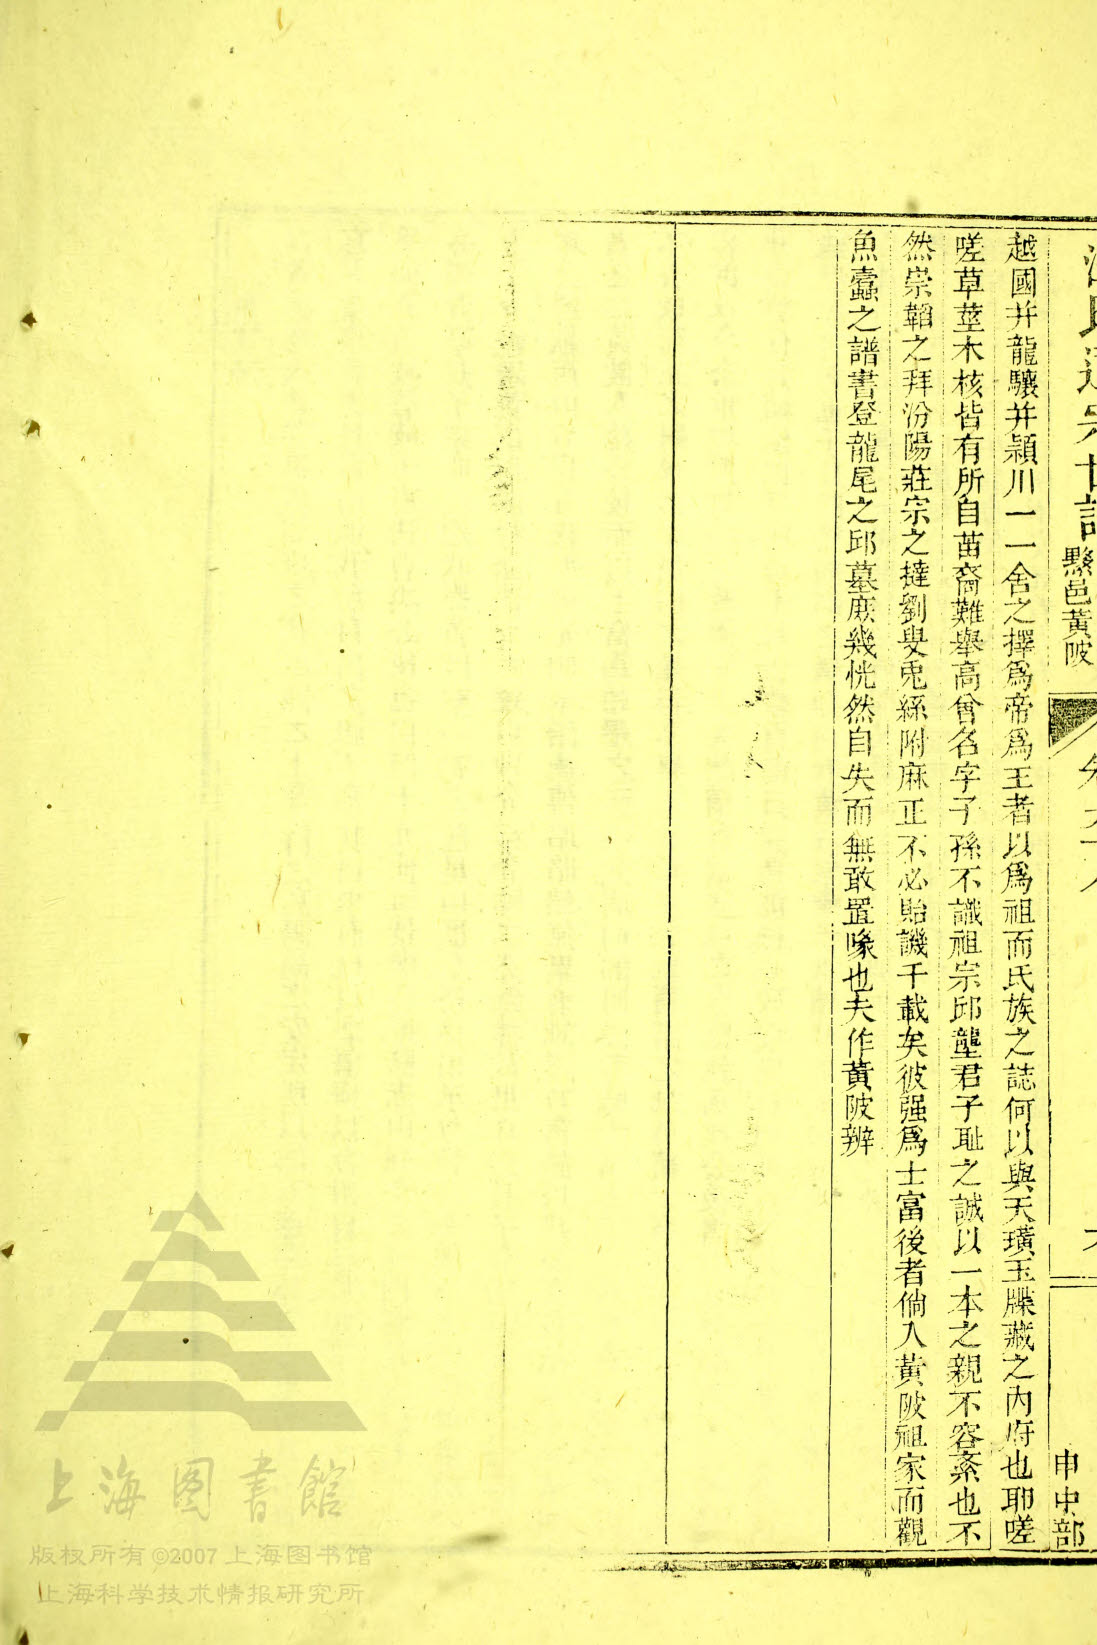 汪氏通宗世譜
黟邑黃陂
申中部
越國并龍驤并潁川一一舍之擇爲帝爲王者以爲祖而氏族之誌何以與天璜玉牒藏之內府也耶嗟
嗟草莖木核皆有所自苗裔難舉高曾名字子孫不識祖宗邱壟君子耻之誠以一本之親不容紊也不
然崇韜之拜汾陽莊宗之撻劉叟兎絲附麻正不必貽譏千載矣彼强爲士富後者倘入黃陂祖家而觀
魚蠹之譜書登龍尾之邱墓庻幾恍然自失而無敢置喙也夫作黃陂辨
上海图書館
版权所有©2007上海图书馆
上海科学技术情报研究所